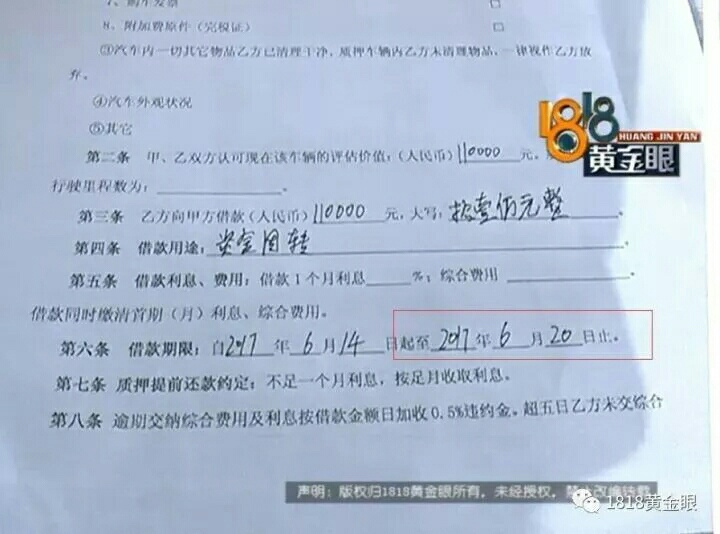 7、购车发票 □
8、附加费原件（完税证） □
③汽车内一切其它物品乙方已清理干净，质押车辆内乙方未清理物品，一律视作乙方放
弃。
④汽车外观状况
⑤其它
1818
HUANG JIN YAN
黄金眼
第二条 甲、乙双方认可现在该车辆的评估价值：（人民币）110000 元。
行驶里程数为：
第三条 乙方向甲方借款（人民币）110000 元，大写：拾壹佰元整
第四条 借款用途：资金周转
第五条 借款利息、费用：借款1个月利息 %；综合费用
借款同时缴清首期（月）利息、综合费用。
第六条 借款期限：自2017 年 6 月 14 日起至 2017 年 6 月 20 日止。
第七条 质押提前还款约定：不足一个月利息，按足月收取利息。
第八条 逾期交纳综合费用及利息按借款金额日加收0.5%违约金。超五日乙方未交综合
声明：版权归1818黄金眼所有，未经授权，禁止改编转载
1818黄金眼